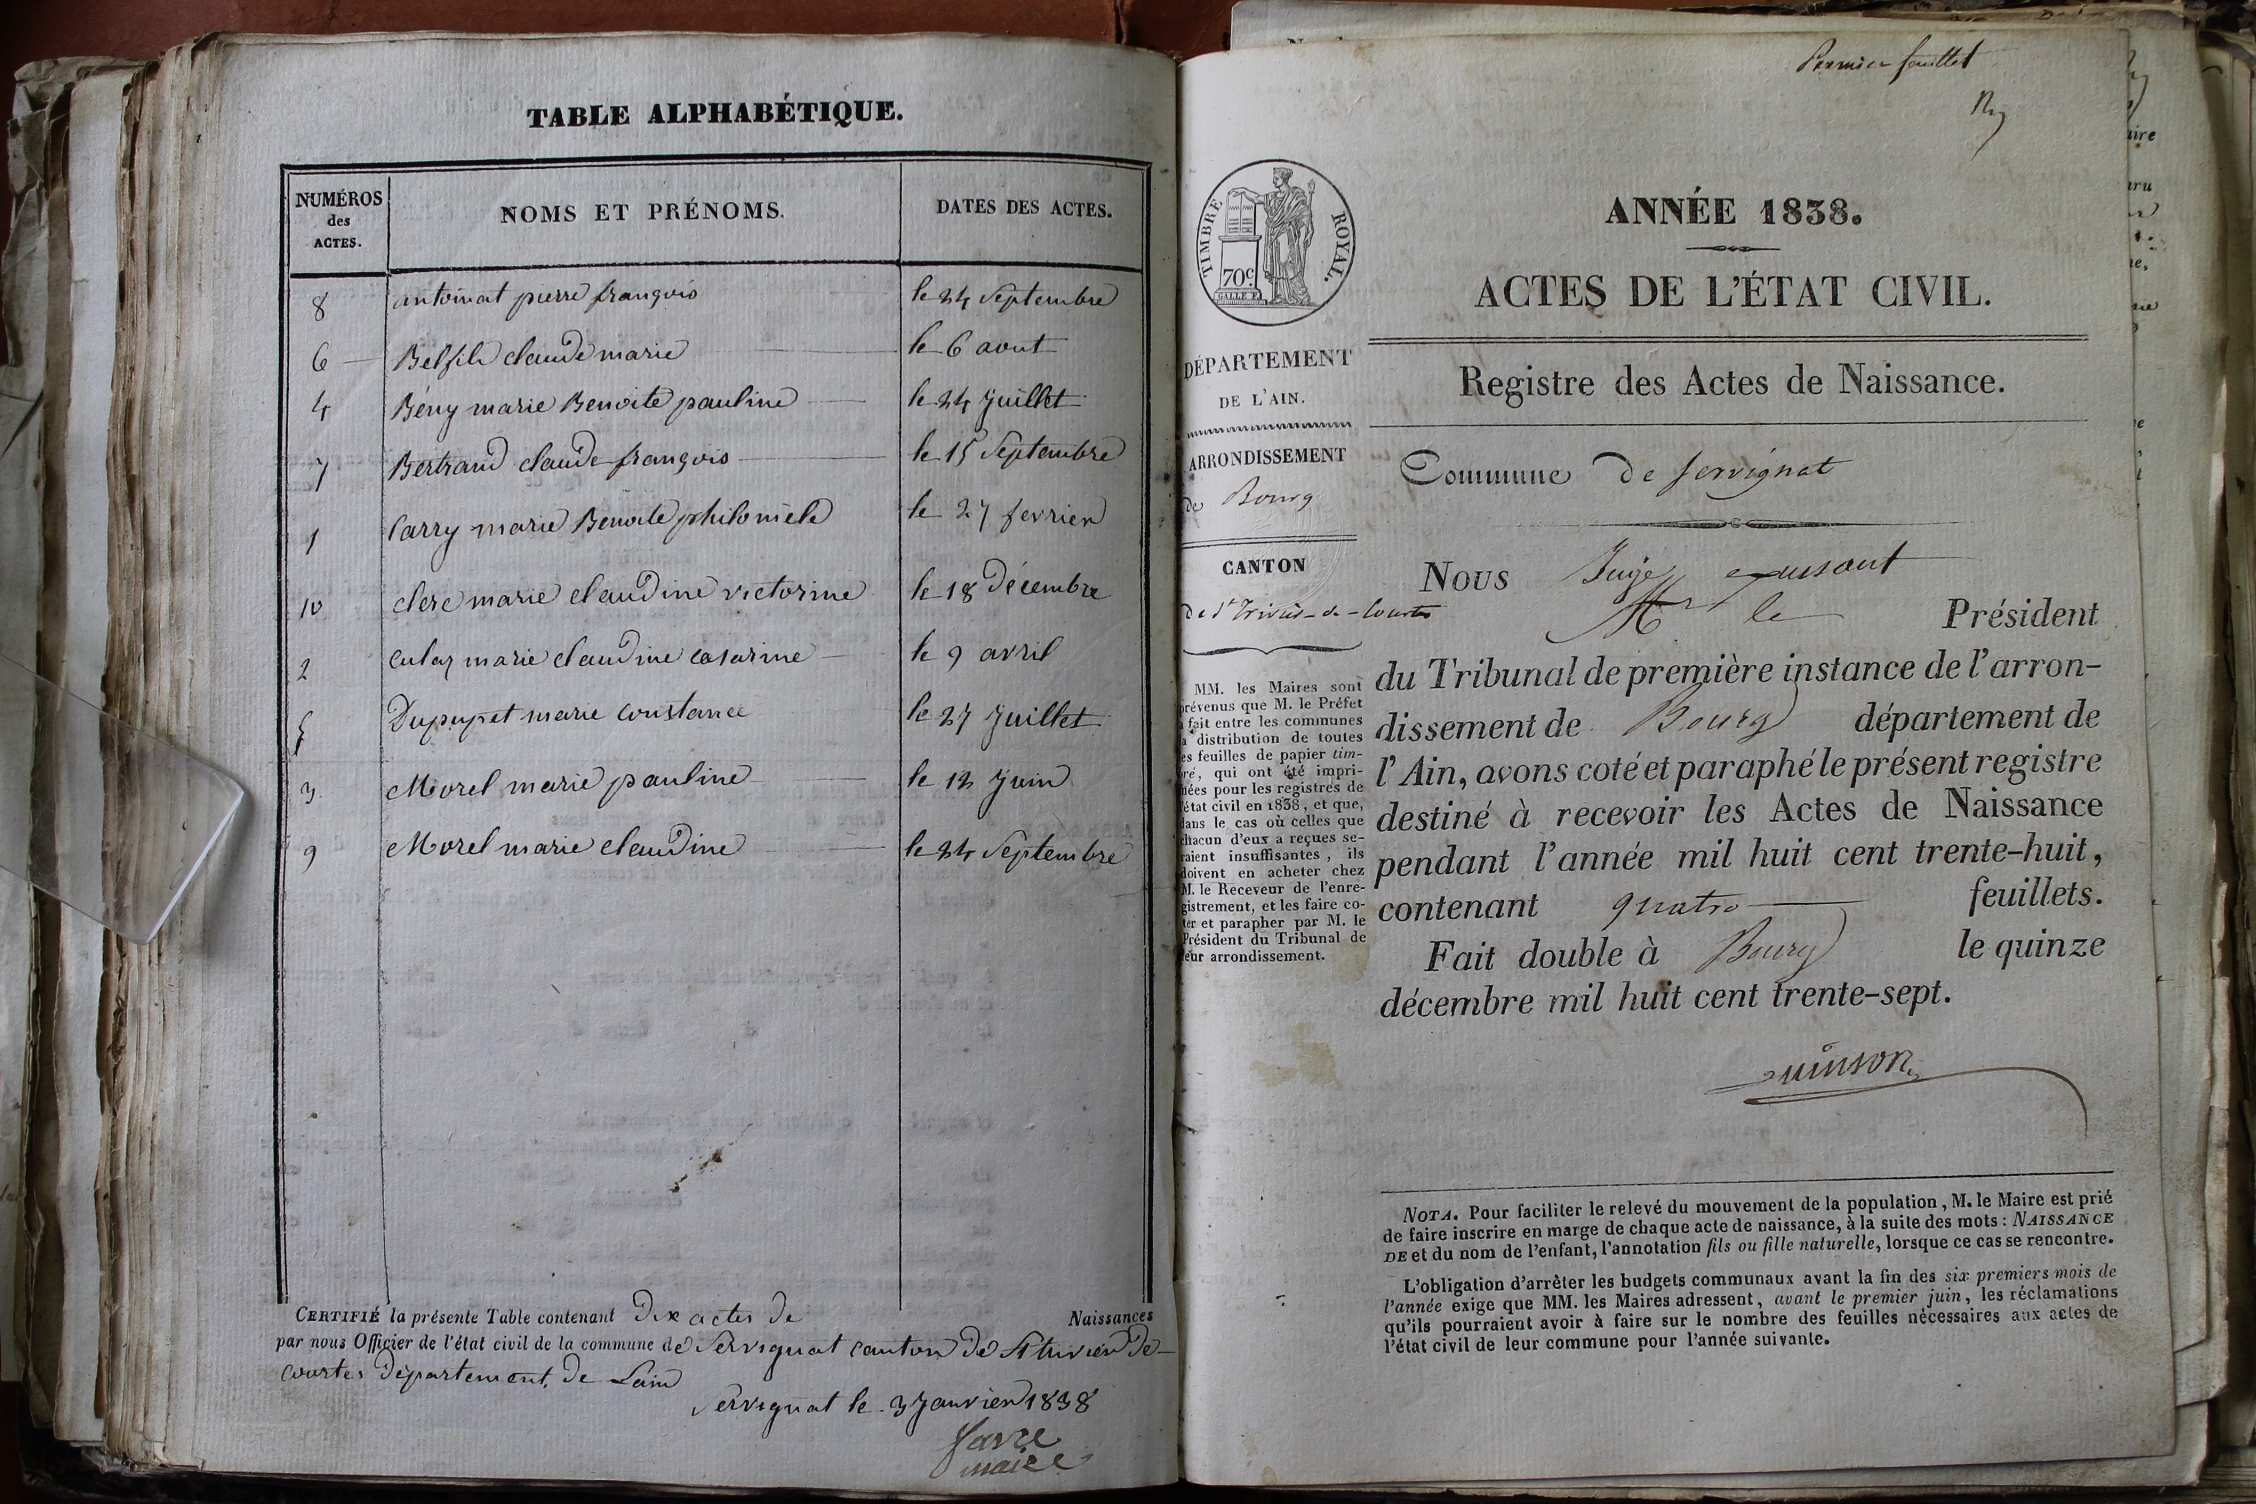 TABLE ALPHABÉTIQUE.
NUMÉROS
des
ACTES.
NOMS ET PRÉNOMS.
DATES DES ACTES.
8 antoinat pierre françois le 24 Septembre
6 Belfils claude marie le 6 aout
4 Bény marie Benoite pauline le 24 Juillet
7 Bertrand claude françois le 15 Septembre
1 Carry marie Benoite philomele le 27 fevrier
10 clerc marie claudine victorine le 18 décembre
2 marie claudine le 9 avril
5 Dupupet marie Constance le 27 Juillet
3 Morel marie pauline le 12 Juin
9 Morel marie claudine le 24 Septembre
CERTIFIÉ la présente Table contenant Dix actes de Naissances
par nous Officier de l'état civil de la commune de Servignat canton De St trivier De
Courtes Département De Lain
Servignat le 3 Janvier 1838
favre
maire
Premier feuillet
TIMBRE ROYAL.
70c
GALLE F.
DÉPARTEMENT
DE L'AIN.
ARRONDISSEMENT
de Bourg
CANTON
de St Trivier-de-Courtes
MM. les Maires sont
prévenus que M. le Préfet
a fait entre les communes
la distribution de toutes
les feuilles de papier tim-
bré, qui ont été impri-
mées pour les registres de
l'état civil en 1838, et que,
dans le cas où celles que
chacun d'eux a reçues se-
raient insuffisantes, ils
doivent en acheter chez
M. le Receveur de l'enre-
gistrement, et les faire co-
ter et parapher par M. le
Président du Tribunal de
leur arrondissement.
ANNÉE 1838.
ACTES DE L'ÉTAT CIVIL.
Registre des Actes de Naissance.
Commune de Servignat
Nous Juge
Mr le Président
du Tribunal de première instance de l'arron-
dissement de Bourg département de
l'Ain, avons coté et paraphé le présent registre
destiné à recevoir les Actes de Naissance
pendant l'année mil huit cent trente-huit,
contenant quatre feuillets.
Fait double à Bourg le quinze
décembre mil huit cent trente-sept.
Quinson
NOTA. Pour faciliter le relevé du mouvement de la population, M. le Maire est prié
de faire inscrire en marge de chaque acte de naissance, à la suite des mots : NAISSANCE
DE et du nom de l'enfant, l'annotation fils ou fille naturelle, lorsque ce cas se rencontre.
L'obligation d'arrêter les budgets communaux avant la fin des six premiers mois de
l'année exige que MM. les Maires adressent, avant le premier juin, les réclamations
qu'ils pourraient avoir à faire sur le nombre des feuilles nécessaires aux actes de
l'état civil de leur commune pour l'année suivante.